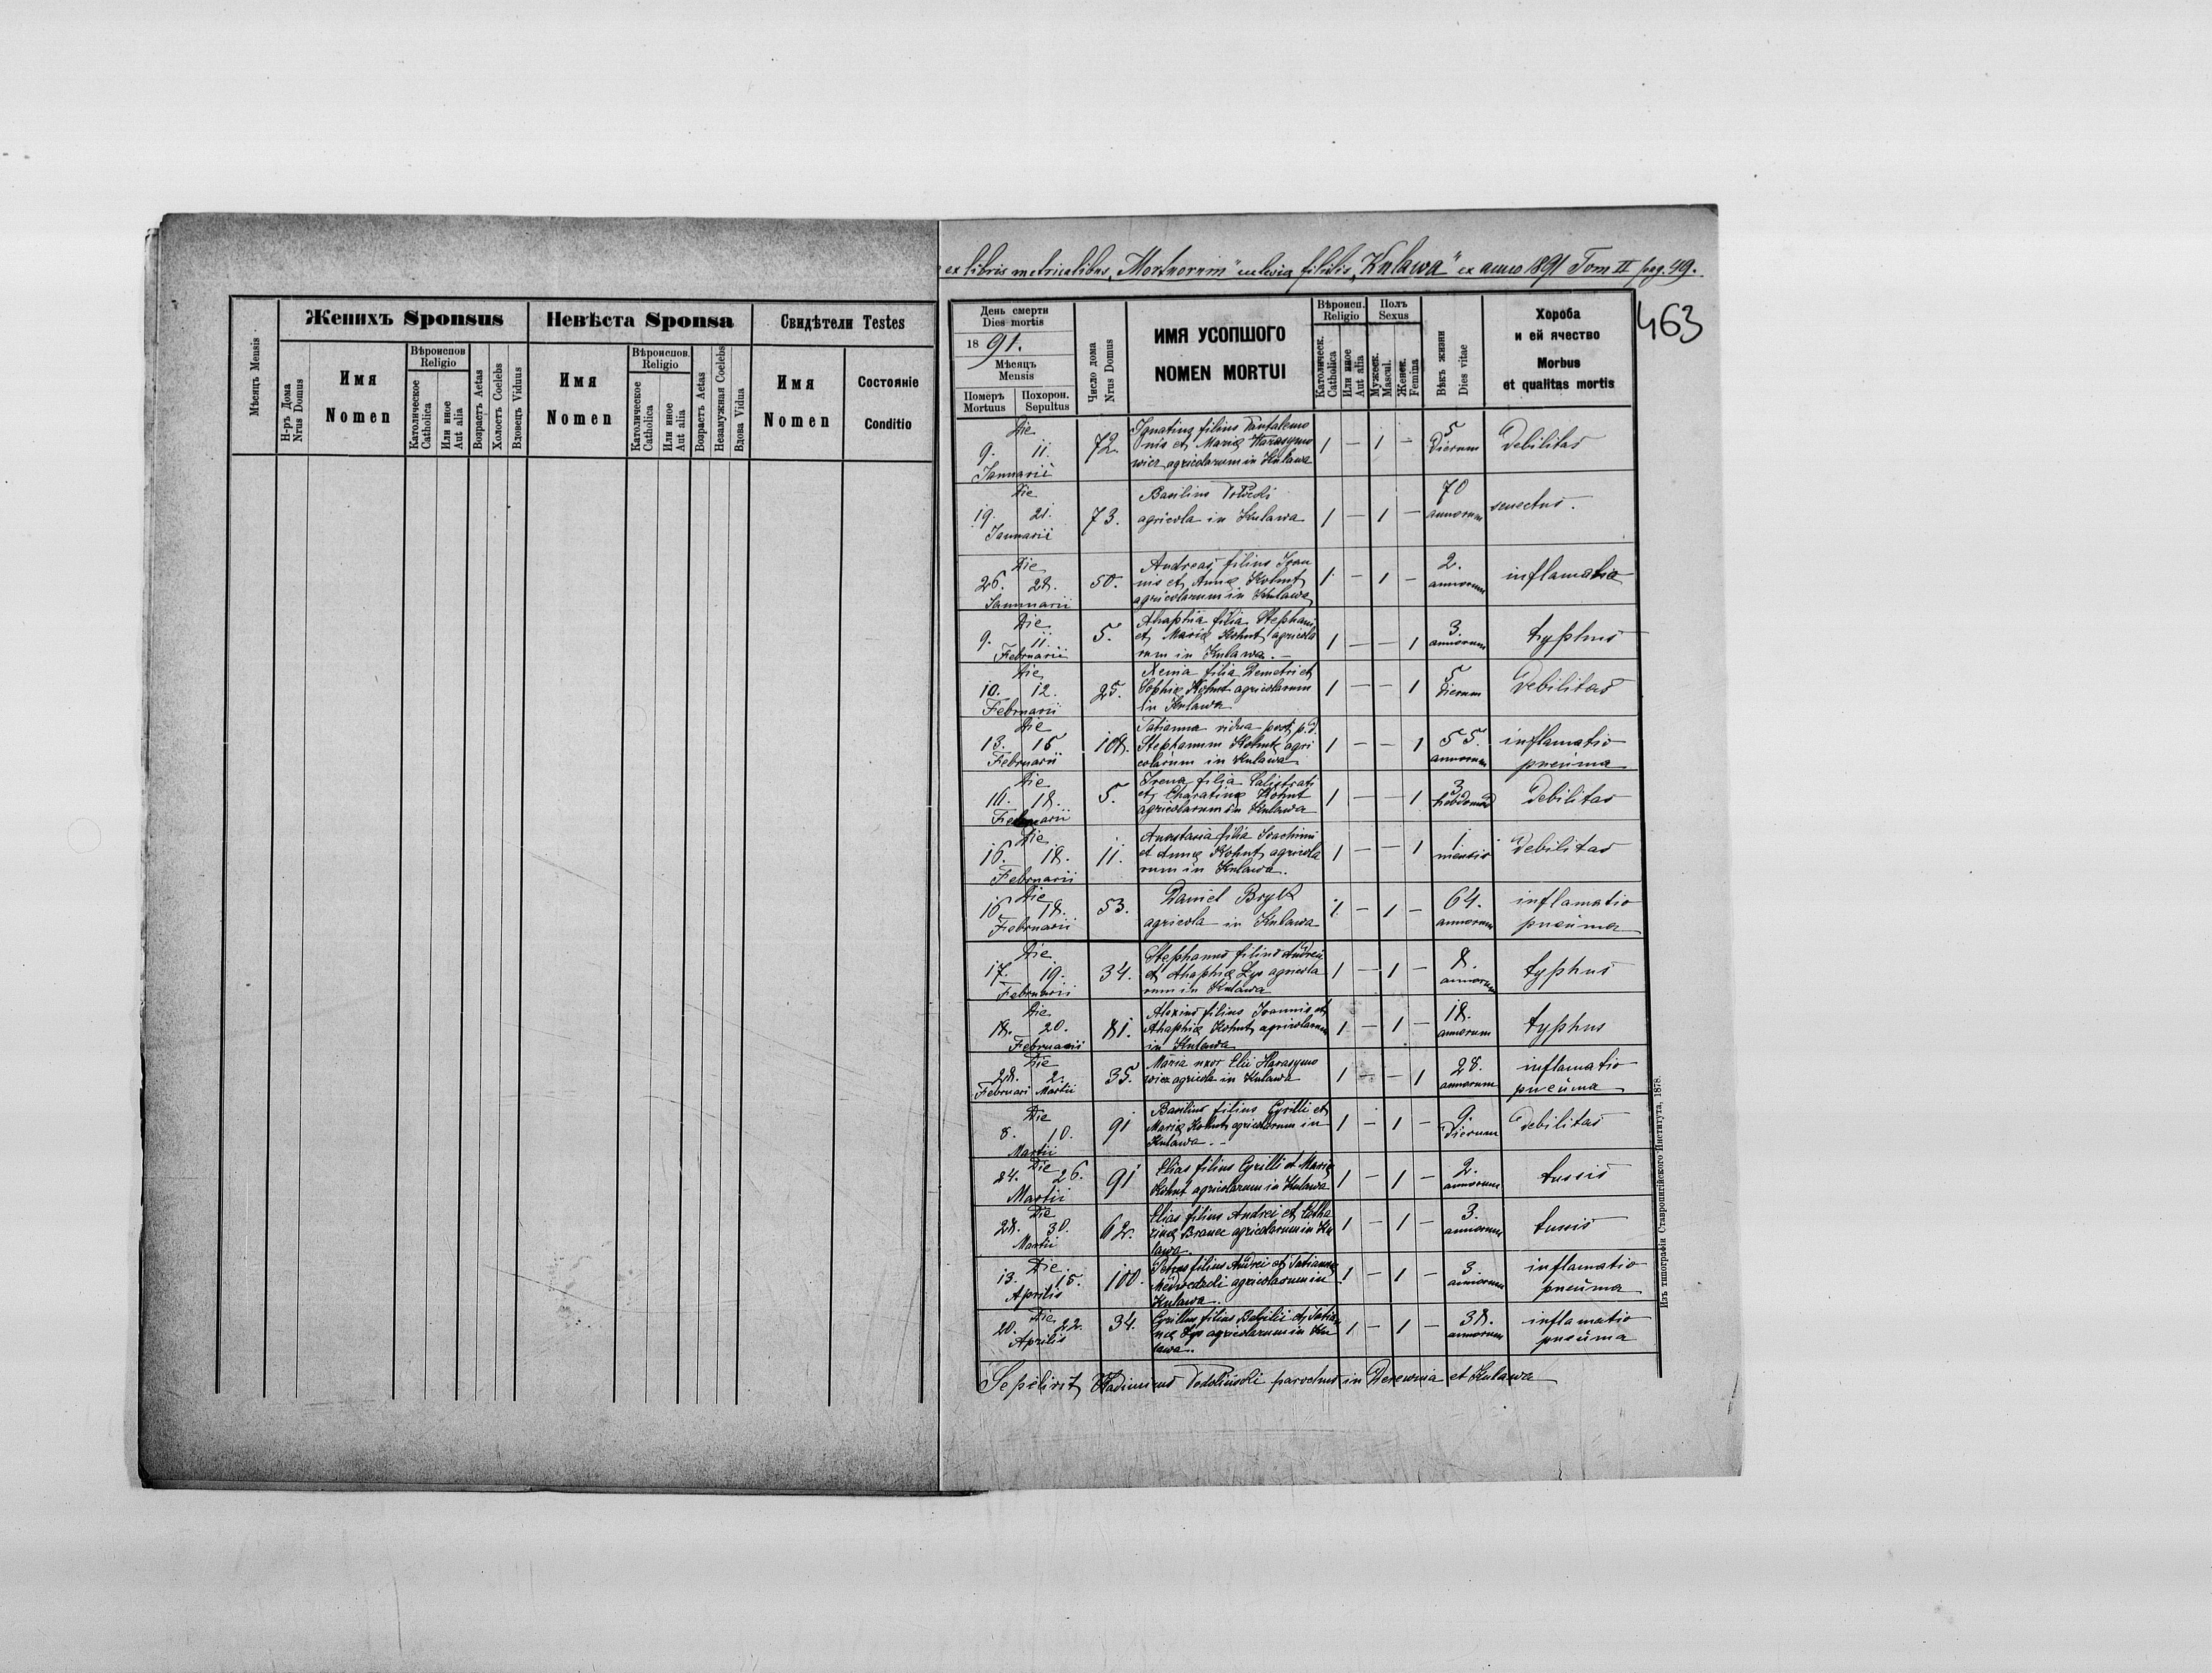 Мѣсяцъ Mensis
Женихъ Sponsus
Невѣста Sponsa
Свидѣтели Testes
Н-ръ Дома
Nrus Domus
Имя
Nomen
Вѣроисповѣд
Religio
Католическое
Catholica
Или иное
Aut alia
Возрастъ Aetas
Холостъ Coelebs
Вдовецъ Viduus
Имя
Nomen
Вѣроиспов.
Religio
Католическое
Catholica
Или иное
Aut alia
Возрастъ Aetas
Незамужная Coelebs
Вдова Vidua
Имя
Nomen
Состояніе
Conditio
ex libris metricalibus "Mortuorum" filialis "Kulawa" ex anno 1891 Tom II pag. 49.
463
День смерти
Dies mortis
1891.
Мѣсяцъ
Mensis
Померъ
Mortuus
Похорон.
Sepultus
Число дома
Nrus Domus
ИМЯ УСОПШОГО
NOMEN MORTUI
Вѣроисп.
Religio
Католическ.
Catholica
Или иное
Aut alia
Полъ
Sexus
Мужеск.
Mascul.
Женск.
Femina
Вѣкъ жизни
Dies vitae
Хороба
и ей ячество
Morbus
et qualitas mortis
Die
9. 11.
Januarii
72.
Ignatius filius Pantalemo
nis et Mariæ Harasymo
wicz agricolarum in Kulawa
1 – 1 –
5
dierum
debilitas
Die
19. 21.
Januarii
73.
Basilius
agricola in Kulawa
1 – 1 –
70
annorum
senectus.
Die
26. 28.
Januarii
50.
Andreas filius Ioan
nis et Annæ Kohut
agricolarum in Kulawa
1 – 1 –
2.
annorum
inflamatio
Die
9. 11.
Februarii
5.
Ahaphia filia Stephani
et Mariæ Kohut agricola
rum in Kulawa. –
1 – – 1
3
annorum
typhus
Die
10. 12.
Februarii
25.
Xenia filia Demetri et
Sophiæ Kohut agricolarum
in Kulawa
1 – – 1
5
dierum
debilitas
Die
13. 15
Februarii
108.
Tatianna vidua post p.d.
Stephanum Kohut agri
colarum in Kulawa
1 – – 1
55.
annorum
inflamatio
pneuma
Die
16. 18.
Februarii
5.
Irena filia Calistrati
et Charatinæ Kohut
agricolarum in Kulawa
1 – – 1
3
hebdomad
debilitas
Die
16. 18.
Februarii
11.
Anastasia filia Ioachimi
et Annæ Kohut agricola
rum in Kulawa.
1 – – 1
1
mensis
debilitas
Die
16. 18.
Februarii
53.
Daniel Bryk
agricola in Kulawa
1 – 1 –
64.
annorum
inflamatio
pneuma
Die
17. 19.
Februarii
34.
Stephanus filius Andrei
et Ahaphiæ Lys agricola
rum in Kulawa
1 – 1 –
8.
annorum
typhus
Die
18. 20.
Februarii
81.
Alexius filius Joannis et
Ahaphiæ Kohut agricolarum
in Kulawa
1 – 1 –
18.
annorum
typhus
Die
28. 2.
Februari Martii
35.
Maria uxor Elii Harasymo
wicz agricola in Kulawa
1 – – 1
28.
annorum
inflamatio
pneuma
Die
8. 10.
Martii
91
Basilius filius Cyrilli et
Mariæ Kohut agricolarum in
Kulawa. –
1 – 1 –
9.
dierum
debilitas
Die
24. 26.
Martii
91
Elias filius Cyrilli et Mariæ
Kohut agricolarum in Kulawa
1 – 1 –
2.
annorum
tussis
Die
28. 30.
Martii
62.
Elias filius Andrei et Catha
rinæ Branec agricolarum in Ku
lawa.
1 – 1 –
3.
annorum
tussis
Die
13. 15.
Aprilis
100.
Petrus filius Andrei et Tatiannæ
agricolarum in
Kulawa.
1 – 1 –
3.
annorum
inflamatio
pneuma
Die
20. 22.
Aprilis
34.
Cyrillus filius Basilii et Tatia
næ Lys agricolarum in Ku
lawa.
1 – 1 –
38.
annorum
inflamatio
pneuma
Sepelivit Wladimirus parochus in Derewnia et Kulawa
Изъ типографіи Ставропигійского Института, 1878.